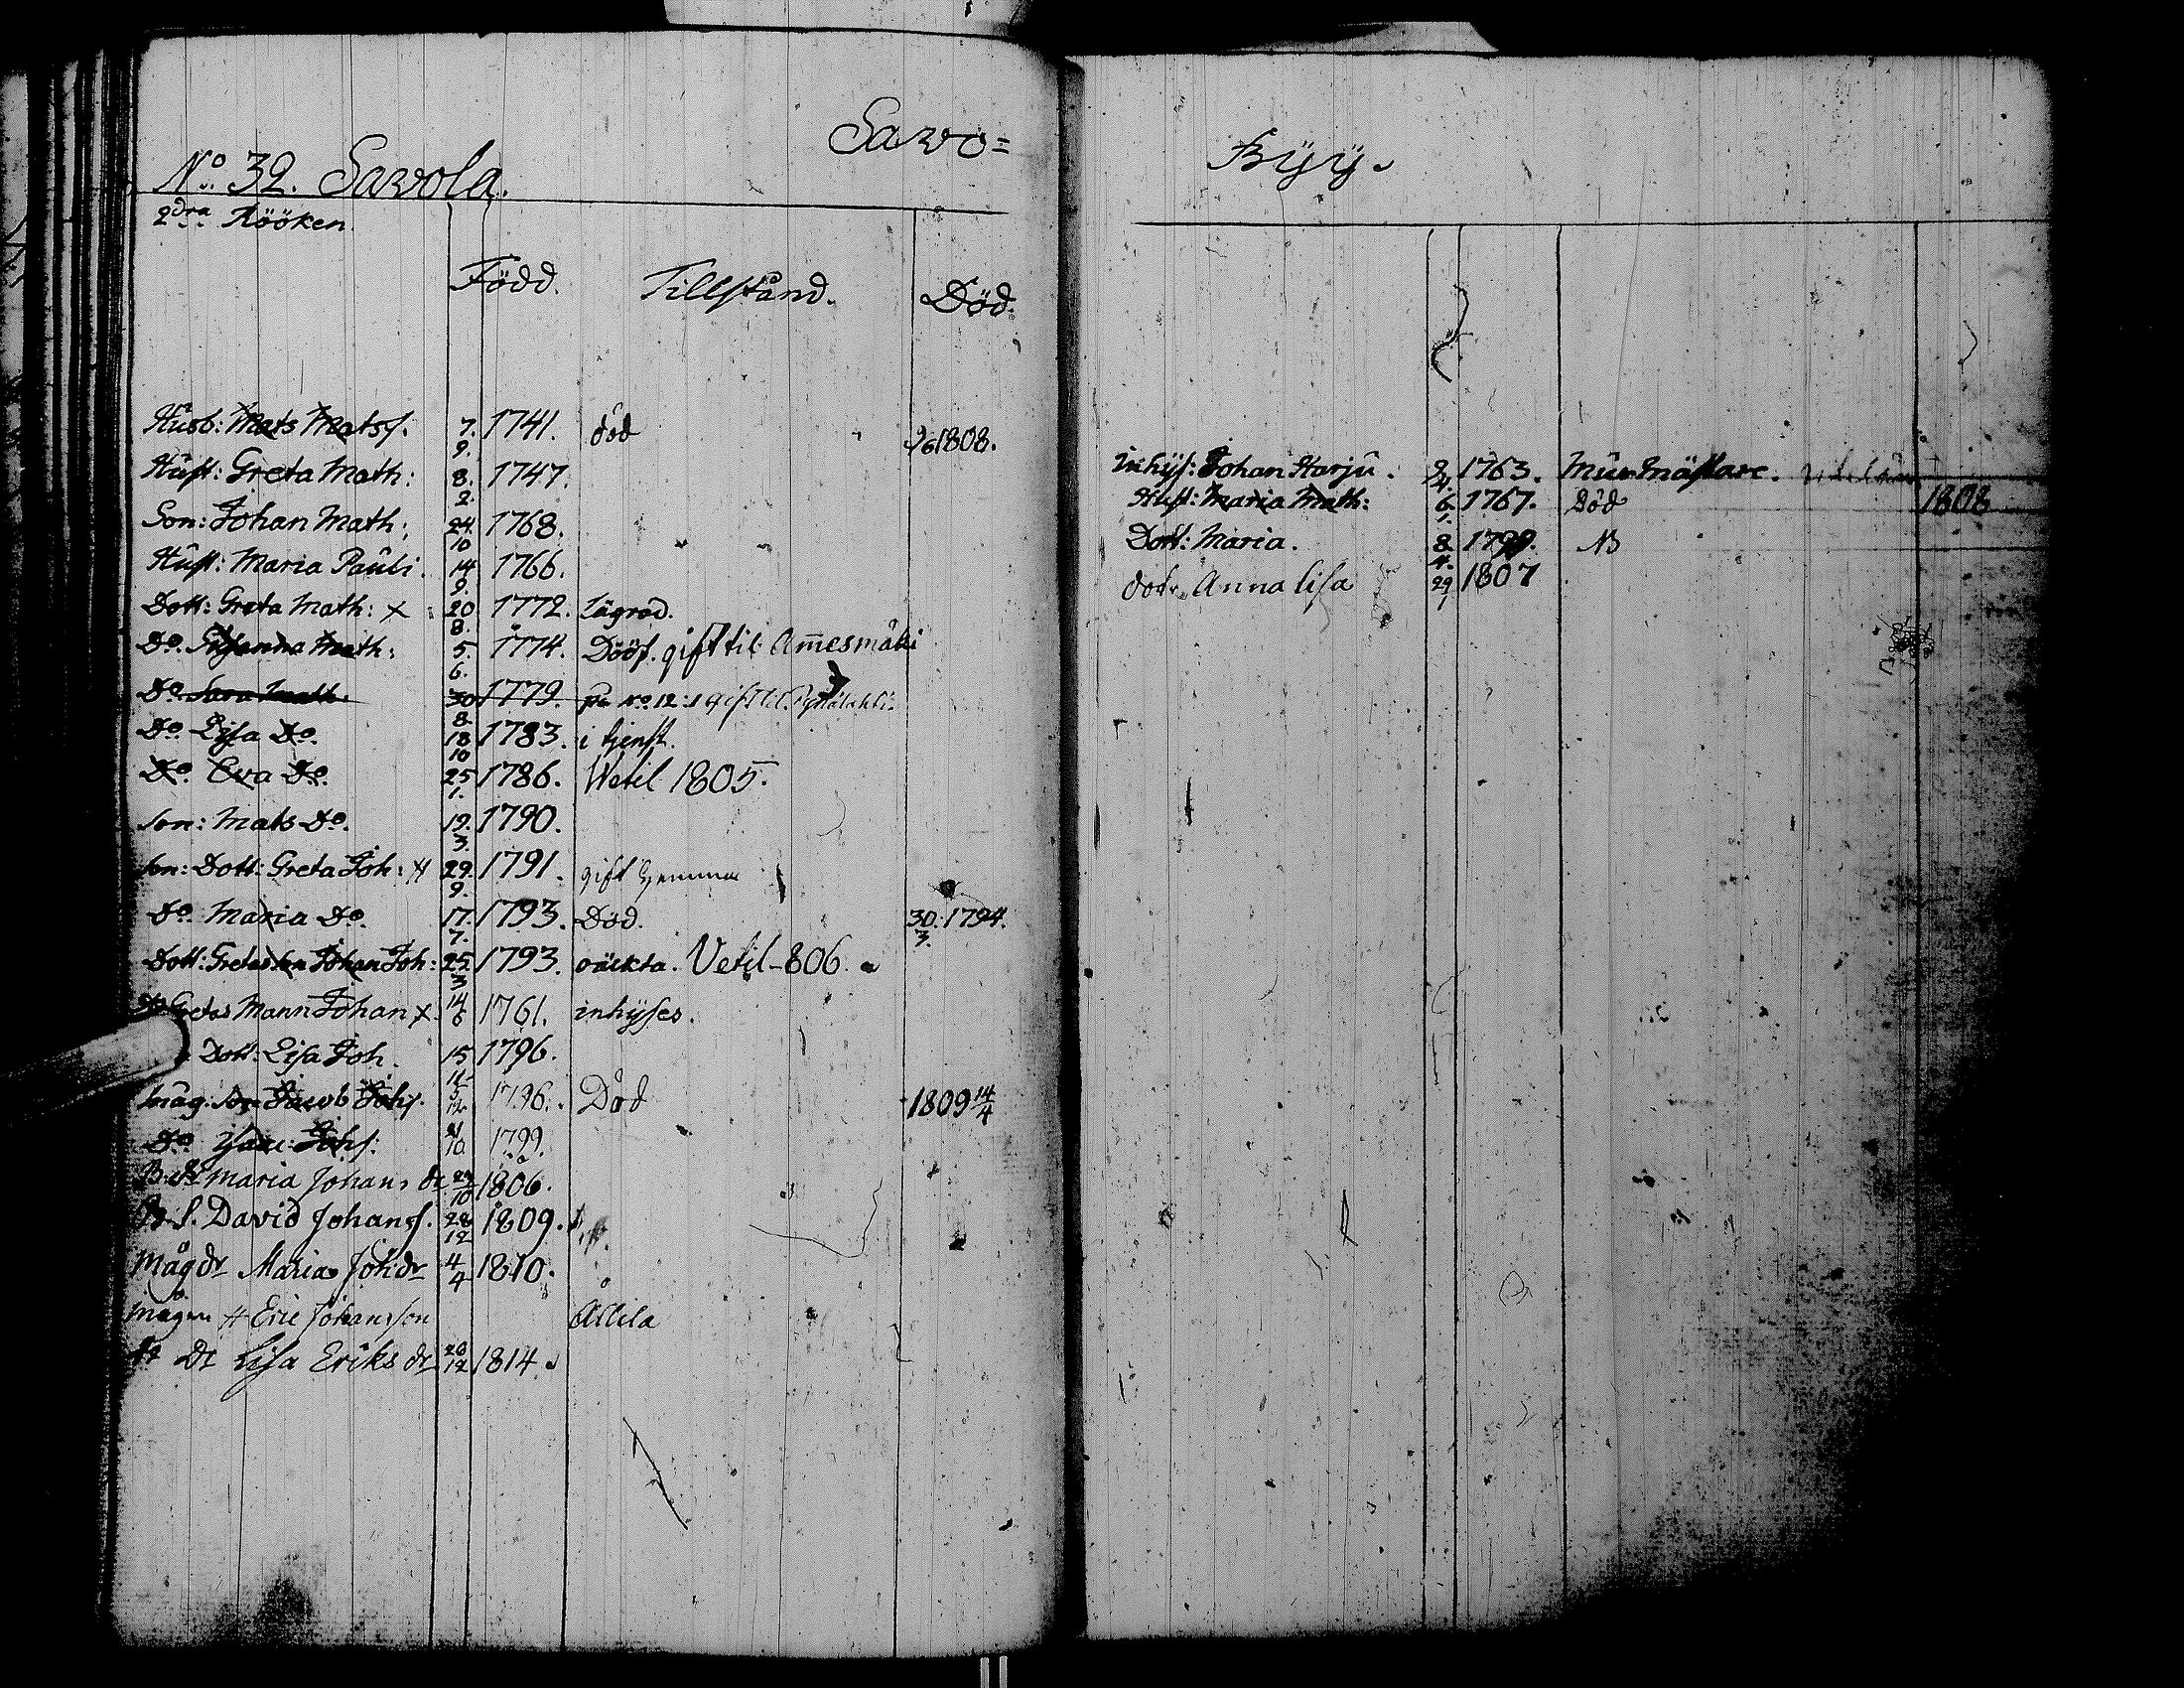 Savo=
No. 32. Savola.
2dra Rööken.
Född. Tillstånd. Död.
Husb: Mats Matsf. 7. 9. 1741. död 1808.
Hust: Greta Math: 8. 2. 1747.
Son: Johan Math: 24. 10 1768.
Hust: Maria Pauli. 14 9. 1766.
Dott: Greta Math: x 20. 8. 1772. Lägrad.
Do. Susanna Math: 5. 6. 1774. Dööf. gift til Am̅esmäki
Do Sara Math. 30 8. 1779. No. 12:1 gift til
Do. Lisa Do. 18 10 1783. i tjenst.
Do. Eva Do. 25 1. 1786. Wetil 1805.
Son: Mats Do. 19. 3. 1790.
Son: Dott: Greta Joh: # 29. 9. 1791. gift hemma
Do. Maria Do. 17. 7. 1793. Död. 30. 3. 1794.
Dott: Gretas son Johan Joh: 25. 3 1793. oäckta. Vetil-806.
Gretas Mann Johan x. 14 6 1761. inhyses.
Dott: Lisa Joh. 15 11 1796.
Måg: son Jacob Johs. 5 12 1796. Död 1809 14/4
Do Johs: 21 10. 1799.
Maria Johans dr 27/10 1806.
S. David Johans s. 28 12 1809.
Måg dr Maria Joh:dr 4 4 1810.
Mågen # Eric Johansson Allila
Dr Lisa Eriks dr 20 12 1814.
Byy.
Inhys: Johan Harju. 2 4. 1763. Murmästare.
Hust: Maria Math: 6. 1. 1767. Död 1808
Dott: Maria. 8. 4. NB
dotr. Anna Lisa 29 1 1807